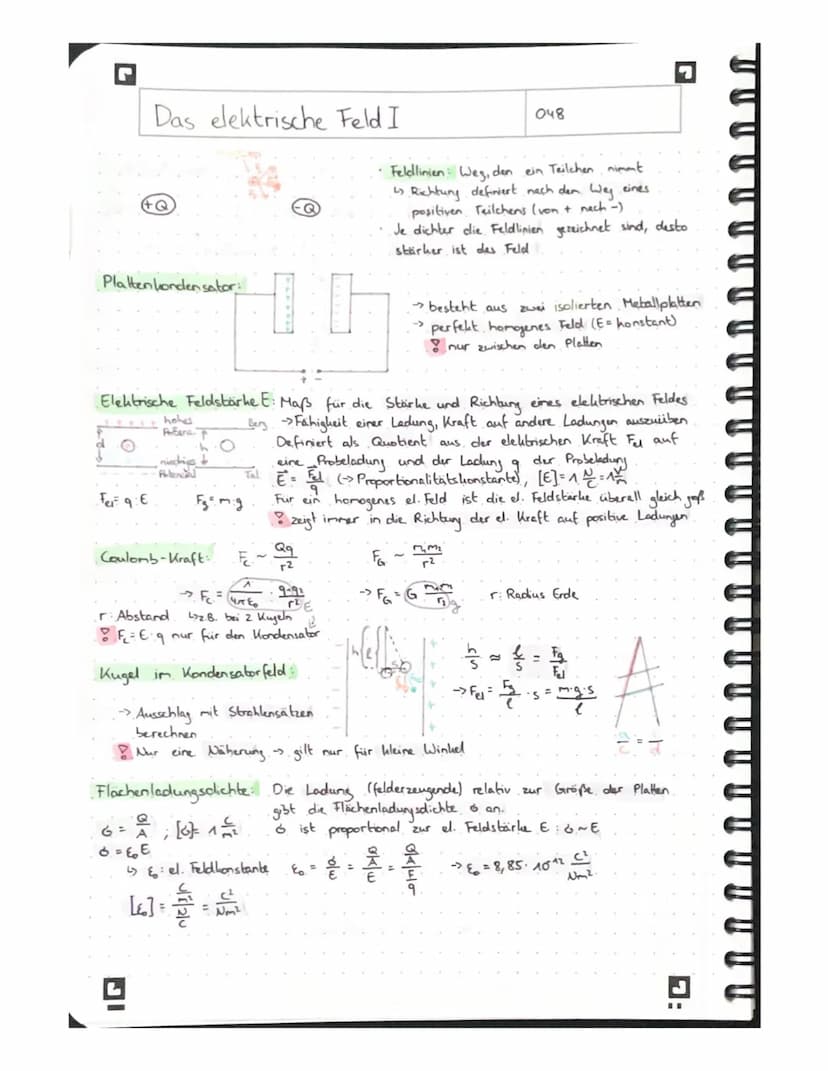 Das elektrische Feld I
048
· Feldlinien: Weg, den ein Teilchen nimmt
↳ Richtung definiert nach den Weg eines
positiven Teilchens (von + nach -)
· Je dichter die Feldlinien gezeichnet sind, desto
stärker ist das Feld
+Q
-Q
Plattenkondensator:
+ -
→ besteht aus zwei isolierten Metallplatten
→ perfekt homogenes Feld (E = konstant)
! nur zwischen den Platten
Elektrische Feldstärke E: Maß für die Stärke und Richtung eines elektrischen Feldes
→ Fähigkeit einer Ladung, Kraft auf andere Ladungen auszuüben
Definiert als Quotient aus der elektrischen Kraft Fel auf
eine Probeladung und der Ladung q der Probeladung
E = Fel/q (→ Proportionalitätskonstante), [E] = 1 N/C = 1 V/m
Für ein homogenes el. Feld ist die el. Feldstärke überall gleich groß
! zeigt immer in die Richtung der el. Kraft auf positive Ladungen
hohes
Berg
d
h
niedriges
Potenzial
Tal
Fel = q · E
Fg = m · g
Coulomb-Kraft: FC ~ Qq/r²
FG ~ m₁m₂/r²
→ FC = 1/4πε₀ · q₁·q₂/r² E
→ FG = G m₁m₂/r² g
r: Radius Erde
r: Abstand ↳ z.B. bei 2 Kugeln
! FC = E · q nur für den Kondensator
Kugel im Kondensatorfeld:
→ Ausschlag mit Strahlensätzen
berechnen
! Nur eine Näherung → gilt nur für kleine Winkel
h
l
s
h/s ≈ l/s = Fg/Fel
→ Fel = Fg/l · s = m·g·s/l
a/c = /d
Flächenladungsdichte: Die Ladung (felderzeugende) relativ zur Größe der Platten
gibt die Flächenladungsdichte σ an.
σ ist proportional zur el. Feldstärke E: σ ~ E
σ = Q/A ; [σ] = 1 C/m²
σ = ε₀E
↳ ε₀: el. Feldkonstante ε₀ = σ/E = (Q/A)/E = (Q/A)/(F/q) → ε₀ = 8,85 · 10¹² C²/Nm²
[ε₀] = (C/m²)/(N/C) = C²/Nm²